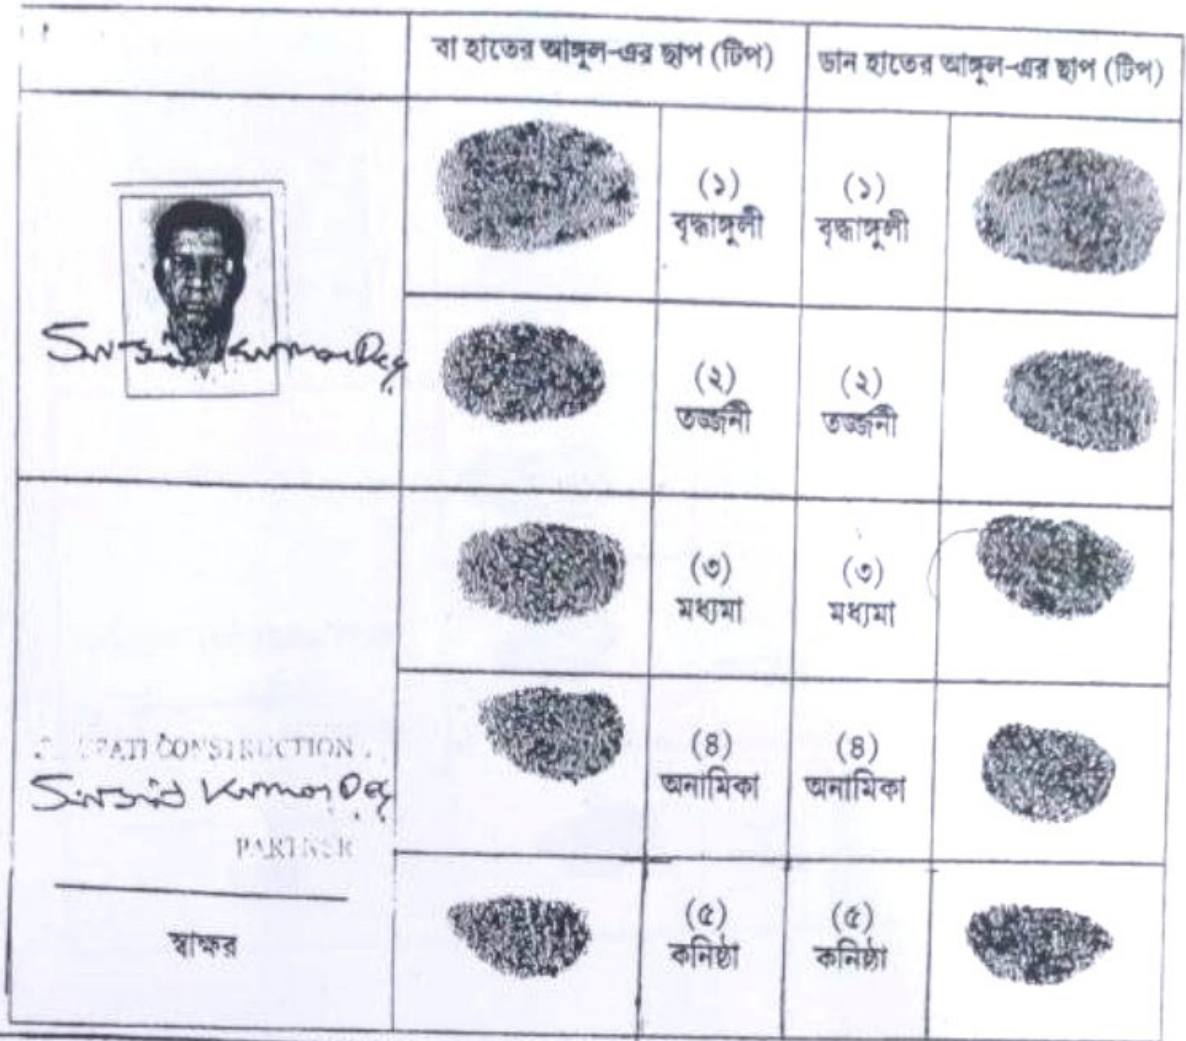 বা হাতের আঙ্গুল-এর ছাপ (টিপ)
ডান হাতের আঙ্গুল-এর ছাপ (টিপ)
(১)
বৃদ্ধাঙ্গুলী
(১)
বৃদ্ধাঙ্গুলী
Kumar Dey
(২)
তর্জ্জনী
(২)
তর্জ্জনী
(৩)
মধ্যমা
(৩)
মধ্যমা
CONSTRUCTION
Kumar Dey
PARTNER
(৪)
অনামিকা
(৪)
অনামিকা
স্বাক্ষর
(৫)
কনিষ্ঠা
(৫)
কনিষ্ঠা